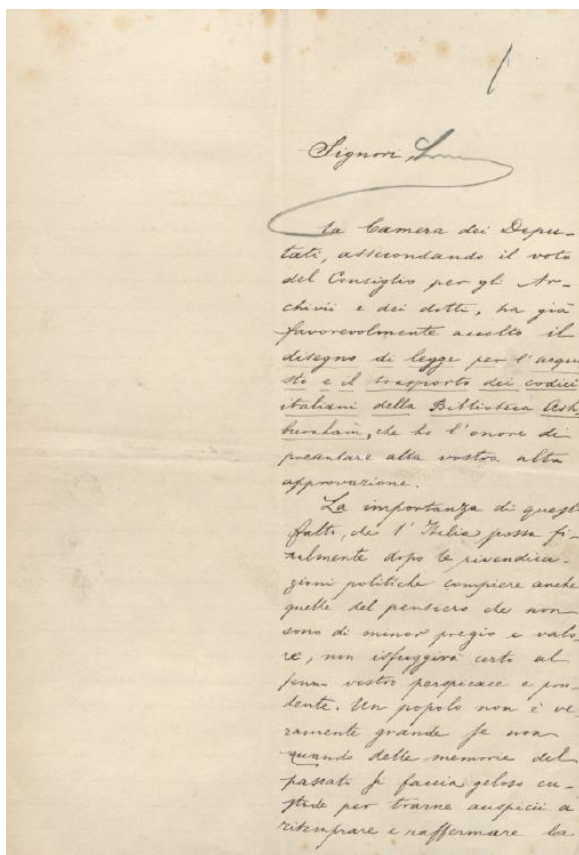 Signori
La Camera dei Depu-
tati, assecondando il voto
del Consiglio per gli Ar-
chivii e dei dotti, ha già
favorevolmente accolto il
disegno di legge per l'acqui
sto e il trasporto dei codici
italiani della Biblioteca Ash
burnham, che ho l'onore di
presentare alla vostra alta
approvazione.
La importanza di questo
fatto, che l'Italia possa fi-
nalmente dopo le rivendica-
zioni politiche compiere anche
quelle del pensiero che non
sono di minor pregio e valo-
re, non isfuggirà certo al
senno vostro perspicace e pru-
dente. Un popolo non è ve
ramente grande se non
quando delle memorie del
passato si faccia geloso cu-
stode per trarne auspicii a
ritemprare e raffermare la